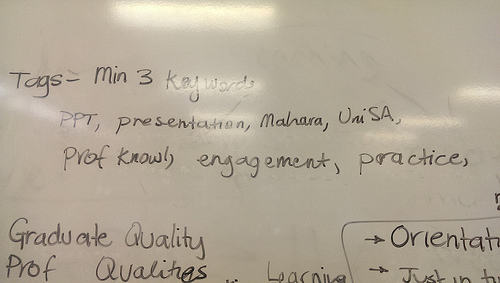 Tags = Min 3 Keywords
PPT, presentation, Mahara, UniSA,
Prof Knowl, engagement, practice,
Graduate Quality
Prof Qualities .. Learning
→ Orientat
→ Just in ti